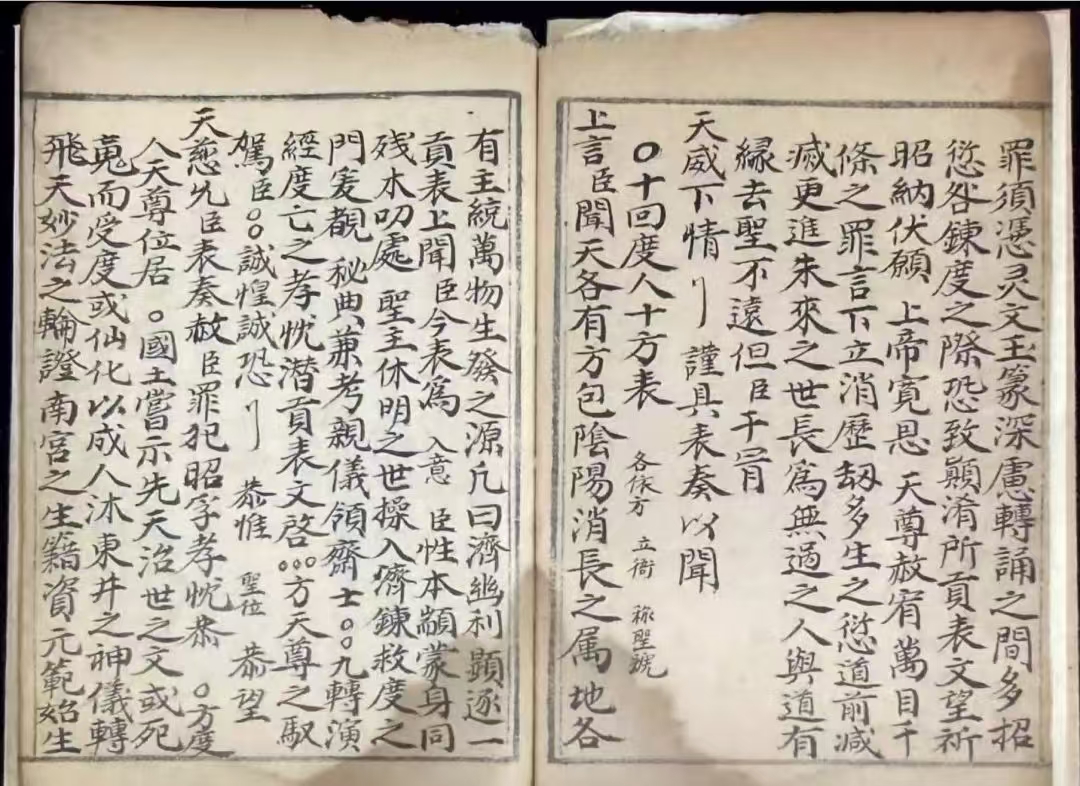 罪須憑灵文玉篆深慮轉誦之間多招
愆咎鍊度之際恐致顛淆所貢表文望祈
昭納伏願 上帝寬恩 天尊赦宥萬目千
條之罪言下立消歷劫多生之愆道前減
滅更進未來之世長為無過之人與道有
緣去聖不遠但臣干冒
天威下情 謹具表奏以聞
〇十回度人十方表 各依方 立衙 称聖號
上言臣聞天各有方包陰陽消長之属地各
有主統萬物生發之源凡曰濟幽利顯逐一
貢表上聞臣今表為 入意 臣性本顓蒙身同
残木叨處 聖主休明之世操入濟鍊救度之
門爰覩秘典兼考親儀領齋士〇〇九轉演
經度亡之孝悅潜貢表文啓〇〇〇方天尊之馭
駕臣〇〇誠惶誠恐 恭惟 聖位 恭望
天慈允臣表奏赦臣罪犯昭孚孝悅恭 〇方度
人天尊位居 〇國土嘗示先天治世之文或死
魂而受度或仙化以成人沐東井之神儀轉
飛天妙法之輪證南宮之生籍資元範始生